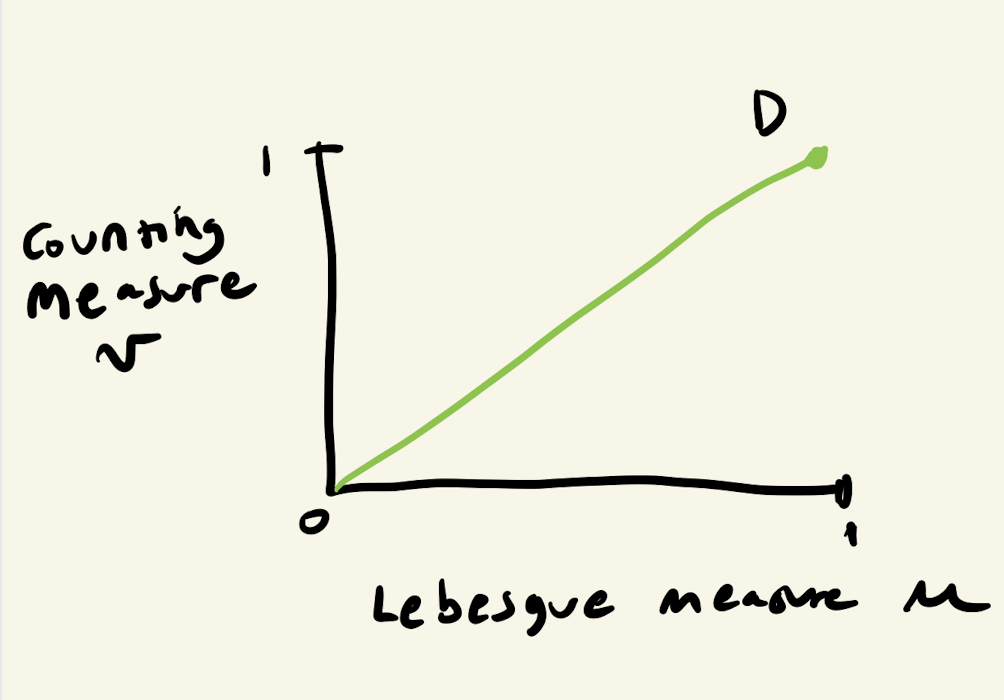 D
1
Counting
measure
ν
0
1
Lebesgue measure μ